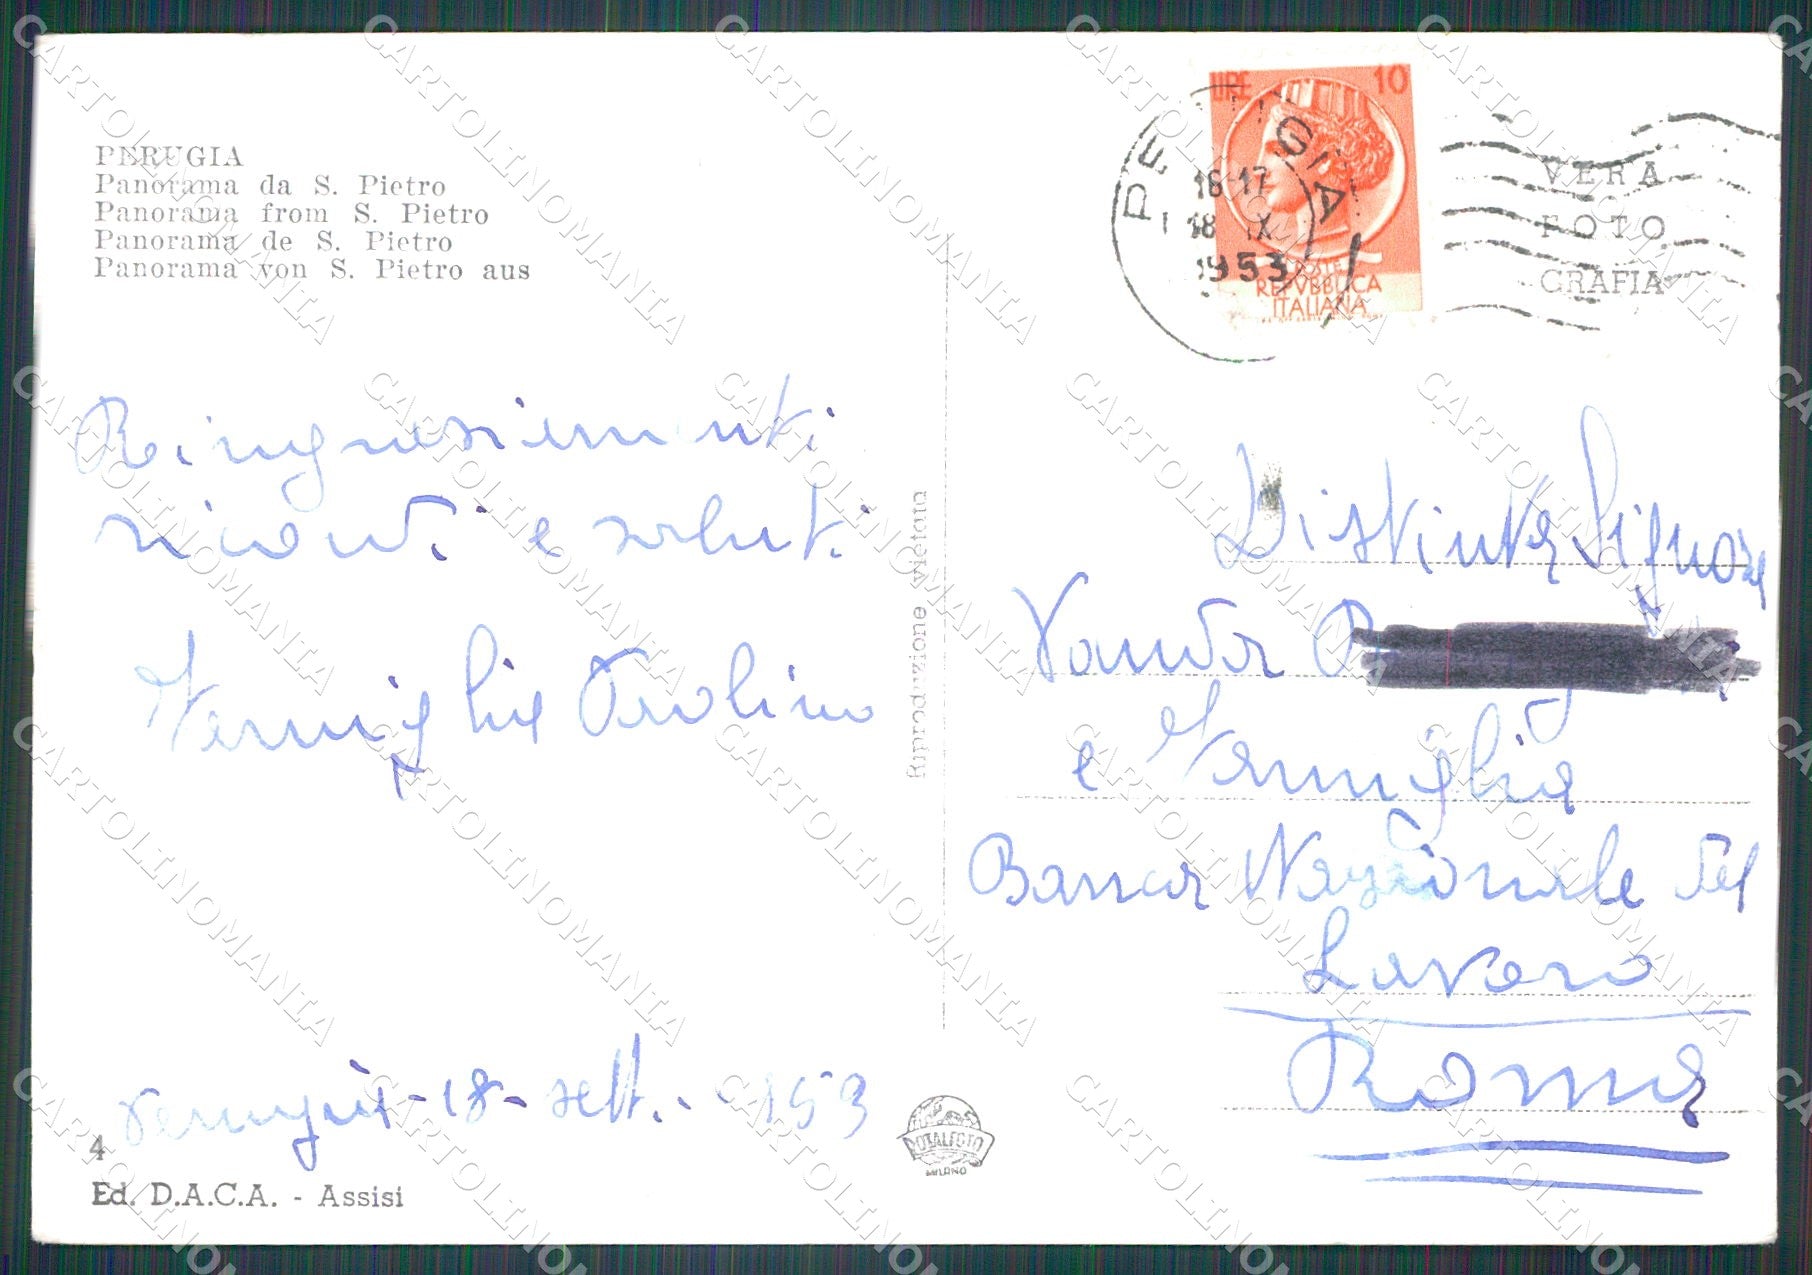 PERUGIA
Panorama da S. Pietro
Panorama from S. Pietro
Panorama de S. Pietro
Panorama von S. Pietro aus
LIRE 10
POSTE
REPVBBLICA
ITALIANA
PERUGIA
16-17
18 IX
1953
VERA
FOTO
GRAFIA
Ringraziamenti
ricordi e saluti
Famiglia Paolino
Perugia - 18 - sett. - 1953
4
Ed. D.A.C.A. - Assisi
Riprodvzione vietata
ROTALFOTO
MILANO
Distinta Signora
Vanda
e Famiglia
Banca Nazionale del
Lavoro
Roma
CARTOLINOMANIA